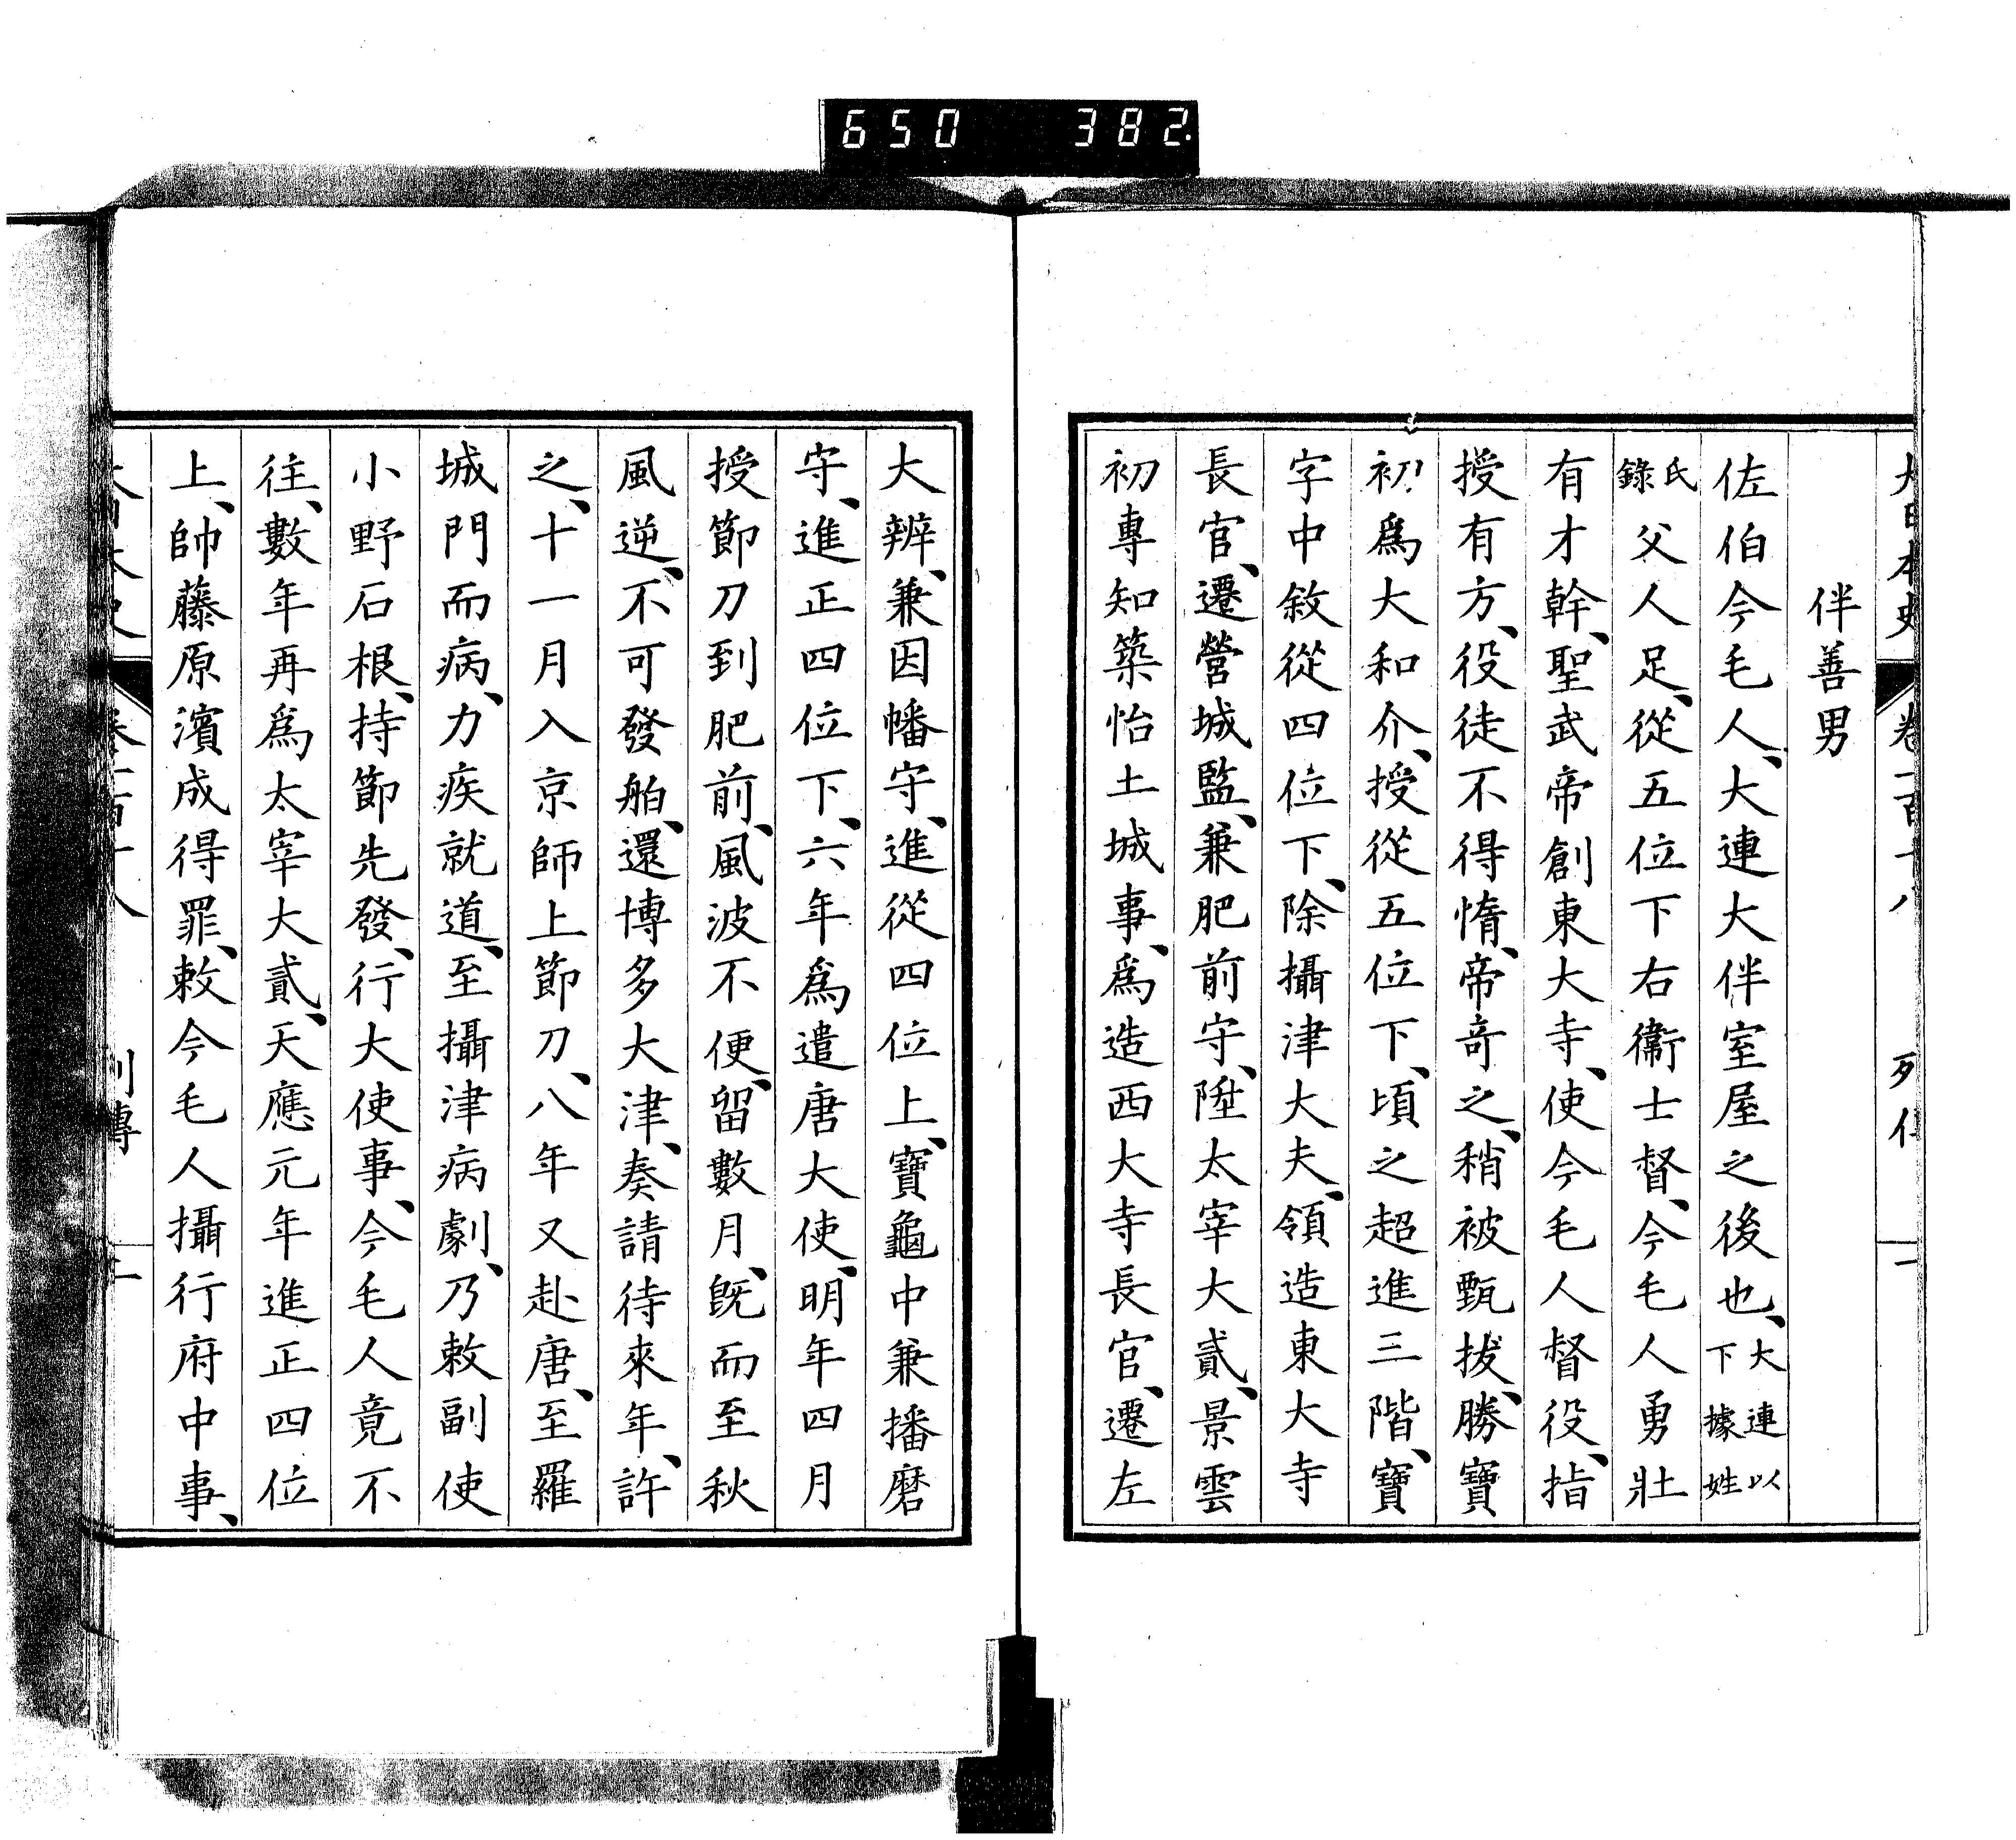 650 382
大日本史 卷一百十八 列傳 一
伴善男
佐伯今毛人、大連大伴室屋之後也、大連以下據姓
氏錄父人足、從五位下右衞士督、今毛人勇壯
有才幹、聖武帝創東大寺、使今毛人督役、指
授有方、役徒不得惰、帝奇之、稍被甄拔、勝寶
初爲大和介、授從五位下、頃之超進三階、寶
字中敘從四位下、除攝津大夫、領造東大寺
長官、遷營城監、兼肥前守、陞太宰大貳、景雲
初專知築怡土城事、爲造西大寺長官、遷左
大辨、兼因幡守、進從四位上、寶龜中兼播磨
守、進正四位下、六年爲遣唐大使、明年四月
授節刀到肥前、風波不便、留數月、既而至秋
風逆、不可發舶、還博多大津、奏請待來年、許
之、十一月入京師上節刀、八年又赴唐、至羅
城門而病、力疾就道、至攝津病劇、乃敕副使
小野石根、持節先發、行大使事、今毛人竟不
往、數年再爲太宰大貳、天應元年進正四位
上、帥藤原濱成得罪、敕今毛人攝行府中事、